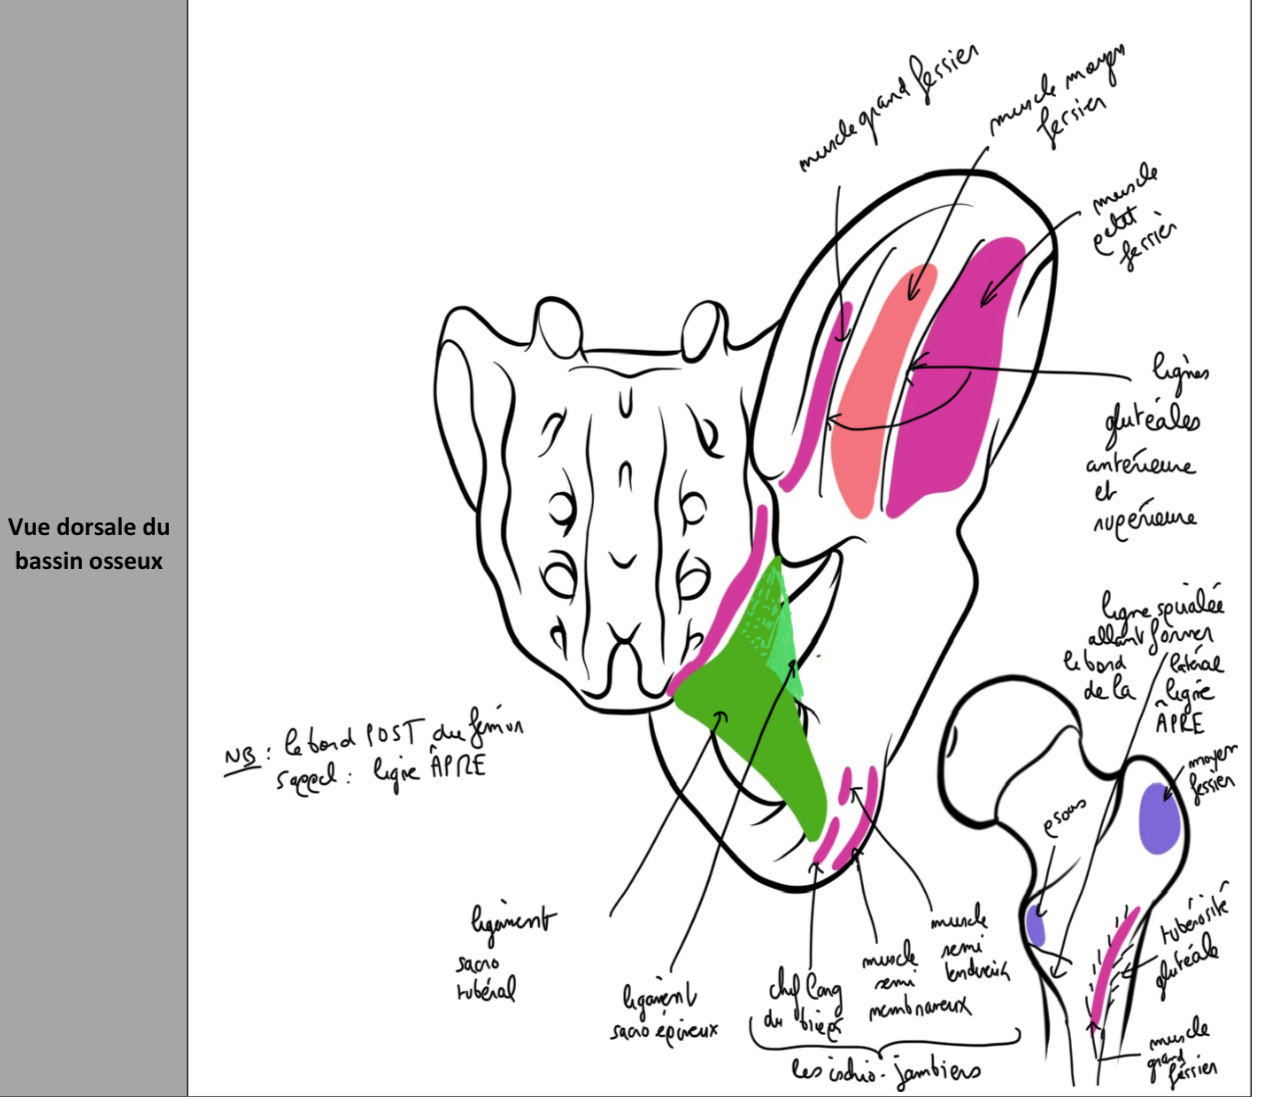 Vue dorsale du
bassin osseux
muscle grand fessier
muscle moyen
fessier
muscle
petit
fessier
lignes
glutéales
antérieure
et
supérieure
ligne spiralée
allant former
le bord latéral
de la ligne
ÂPRE
NB : le bord POST du fémur
s'appel : ligne ÂPRE
moyen
fessier
psoas
tubérosité
glutéale
muscle
grand
fessier
ligament
sacro
tubéral
ligament
sacro épineux
chef long
du biceps
muscle
semi
membraneux
muscle
semi
tendineux
les ischio-jambiers